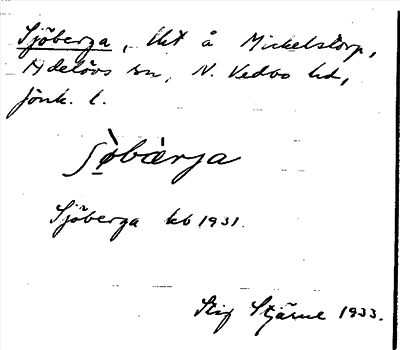 Sjöberga, tkt å Mickelstorp,
Adelövs sn, N. Vedbo hd,
Jönk. l.
ʃø̀bærja
Sjöberga kb 1931.
Stig Stjärne 1933.